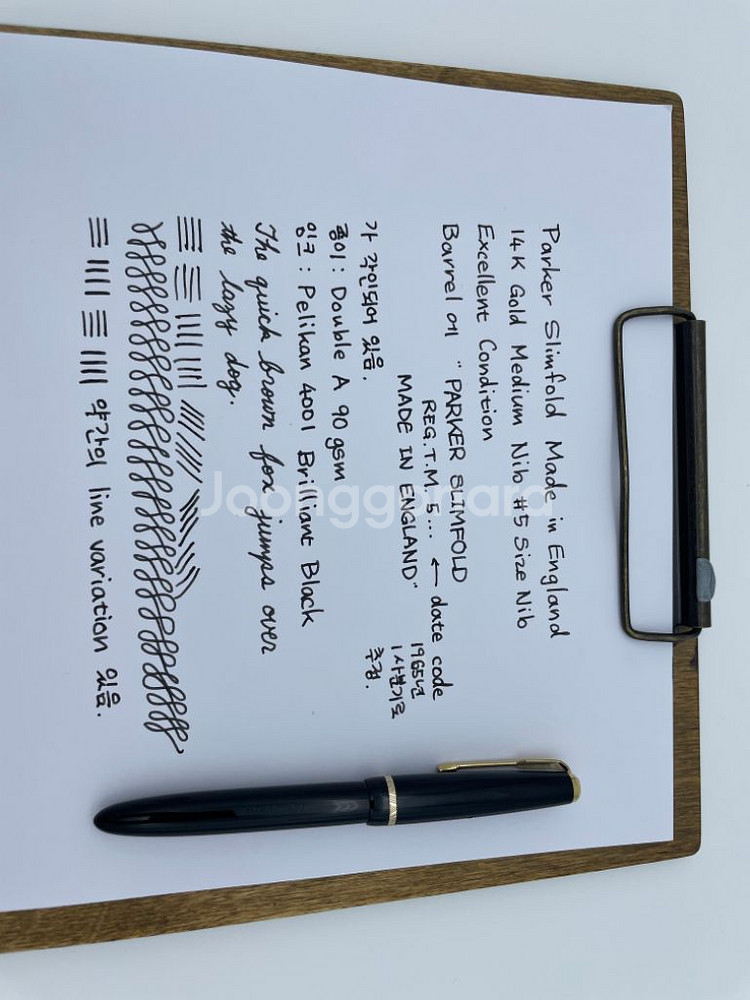 Parker Slimfold Made in England
14K Gold Medium Nib #5 Size Nib
Excellent Condition
Barrel 에 "PARKER SLIMFOLD
REG. T.M 5... ← date code
MADE IN ENGLAND"
1965년
1사분기로
추정.
가 각인되어 있음.
종이 : Double A 90gsm
잉크 : Pelikan 4001 Brilliant Black
The quick brown fox jumps over
the lazy dog.
약간의 line variation 있음.
Joonggonara